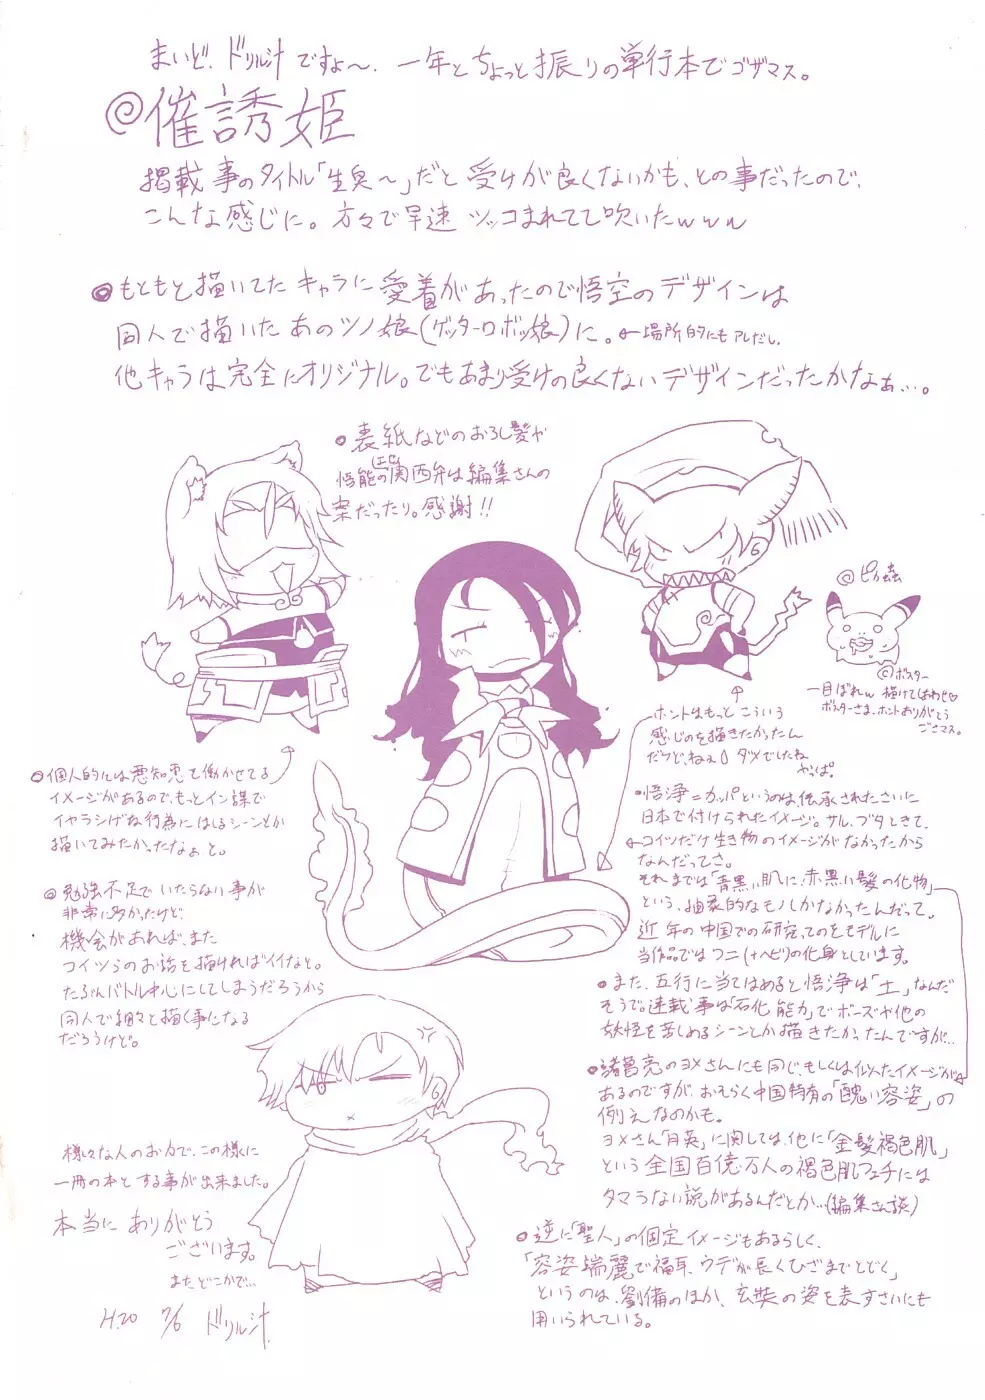 まいど、ドリル汁ですよ〜、一年とちょっと振りの単行本でゴザマス。
@催誘姫
掲載事のタイトル「生臭〜」だと受けが良くないかも、との事だったので、
こんな感じに。方々で早速ツッコまれてて吹いたwww
◎もともと描いてたキャラに愛着があったので悟空のデザインは
同人で描いたあのツノ娘(ゲッターロボッ娘)に。←場所的にもアレだし、
他キャラは完全にオリジナル。でもあまり受けの良くないデザインだったかなぁ…。
●表紙などのおろし髪や
悟能の(エセ)関西弁は編集さんの
案だったり。感謝!!
@ピカ蟲
©ポスター
一目ぼれw 描けてしあわせ♡
ポスターさま、ホントありがとう
ごさマス。
ホントはもっとこういう
感じのを描きたかったん
だけど、ねぇ ダメでしたね
やっぱ。
◎個人的には悪知恵を働かせてる
イメージがあるので、もっとイン謀で
イヤラシげな行為にはしるシーンとか
描いてみたかったなぁと。
●悟浄=カッパというのは、伝承されたさいに
日本で付けられたイメージ。サル、ブタときて、
←コイツだけ生き物のイメージがなかったから
なんだってさ。
それまでは「青黒い肌に、赤黒い髪の化物」
という、抽象的なモノしかなかったんだって。
近年の中国での研究、
当作品ではワニ(+ヘビ)の化身としています。
◎勉強不足でいたらない事が
非常に多かったけど、
機会があれば、また
コイツらのお話を描ければイイなと。
たぶんバトル中心にしてしまうだろうから
同人で細々と描く事になる
だろうけど。
●また、五行に当てはめると悟浄は「土」なんだ
そうで。連載事は「石化能力」でボーズや他の
妖怪を苦しめるシーンとか描きたかったんですが…
●諸葛亮のヨメさんにも同じ、もしくは似たイメージが
あるのですが、おそらく中国特有の「醜い容姿」の
例えなのかも。
ヨメさん「月英」に関しては、他に「金髪褐色肌」
という全国百億万人の褐色肌フェチには
タマラない説があるんだとか…(編集さん談)
●逆に「聖人」の固定イメージもあるらしく、
「容姿端麗で福耳、ウデが長くひざまでとどく」
というのは、劉備のほか、玄奘の姿を表すさいにも
用いられている。
様々な人のお力で、この様に
一冊の本とする事が出来ました。
本当にありがとう
ございます。
またどこかで…
H.20 7/6 ドリル汁